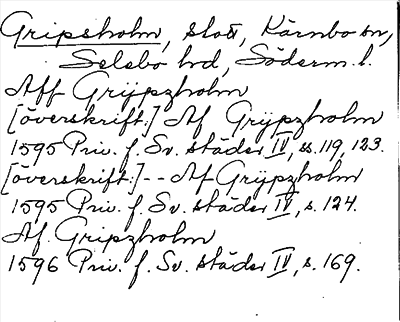 Gripsholm, slott, Kärnbo sn,
Selebo hd, Söderm. l.
Aff Grÿpzholm
[överskrift:] Af Grÿpzholm
1595 Priv. f. Sv. städer IV, ss. 119, 123.
[överskrift:] -- Af Grÿpzholm
1595 Priv. f. Sv. städer IV, s. 124.
Af Gripzholm
1596 Priv. f. Sv. städer IV, s. 169.